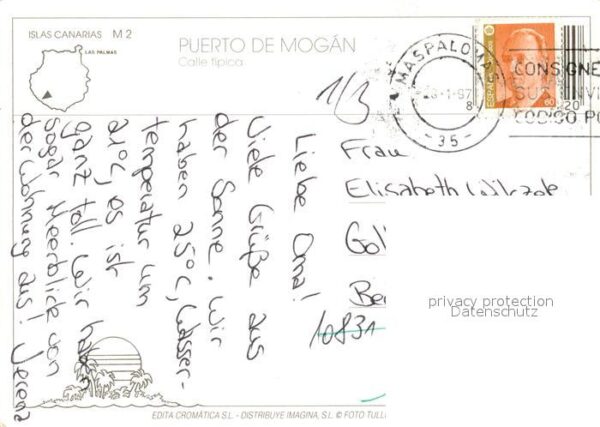 ISLAS CANARIAS M 2
LAS PALMAS
PUERTO DE MOGÁN
Calle típica
MASPALOMAS
-1-97
-35-
ESPAÑA
60
8
220
CONSIGNE
SU ENVI
CODIGO PO
1/3
Liebe Oma!
Viele Grüße aus
der Sonne. Wir
haben 25°C, Wasser-
temperatur um
21°C, es ist
ganz toll. Wir haben
sogar Meerblick von
der Wohnung aus! Verena
Frau
Elisabeth
Gol
Be
10831
privacy protection
Datenschutz
EDITA CROMÁTICA S.L. - DISTRIBUYE IMAGINA, S.L. © FOTO TULL